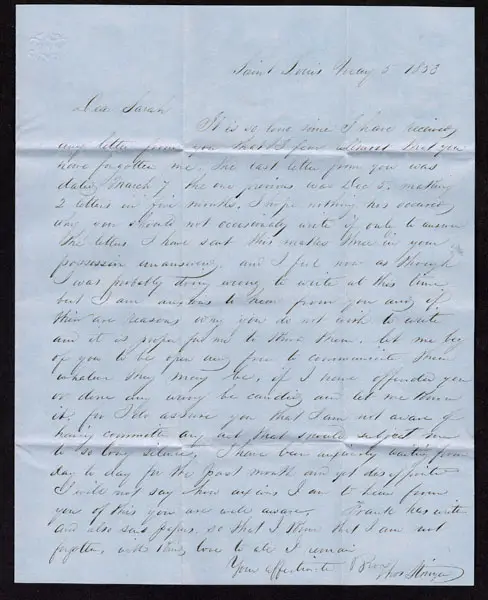 Saint Louis May 5 1853
Dear Sarah
It is so long since I have received
any letter from you that I fear almost that you
have forgotten me, The last letter from you was
dated March 7 the one previous was Dec 5, making
2 letters in five months, I hope nothing has occurred
why you should not occasionly write if only to answer
the letters I have sent this makes three in your
possession unanswered, and I feel now as though
I was probably doing wrong to write at this time
but I am anxious to hear from you and if
their are reasons why you do not wish to write
and it is proper for me to know them, let me beg
of you to be open and free to communicate them
whatever they may be, if I have offended you
or done any wrong be candid and let me know
it, for I do assure you that I am not aware of
having committed any act that should subject me
to so long silence, I have been anxiously waiting from
day to day for the past month and yet disappointed
I will not say how anxious I am to hear from
you of this you are well aware, Frank has written
and also sent papers, so that I think that I am not
forgotten, with kind love to all I remain
Your affectionate